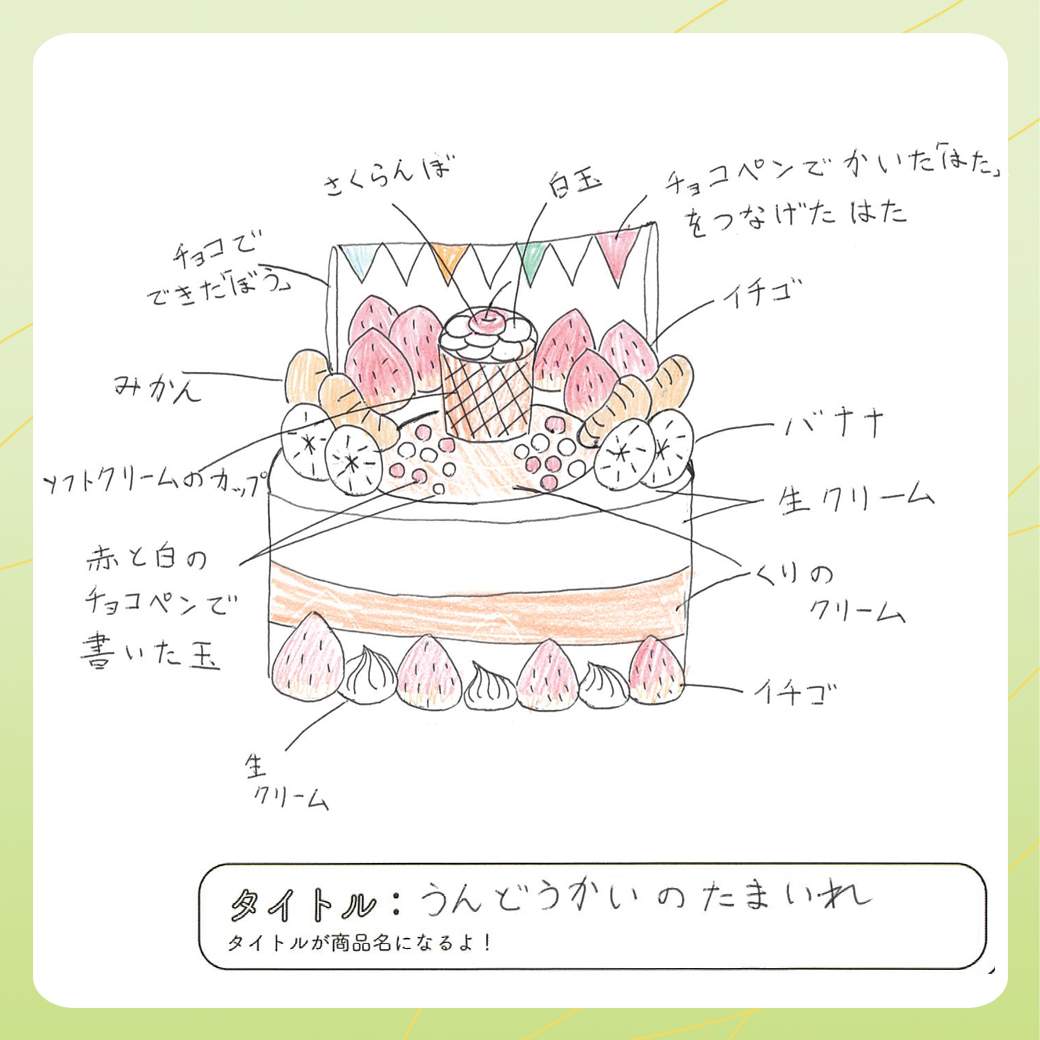 さくらんぼ
白玉
チョコペンでかいた「はた」
をつなげた はた
チョコで
できた「ぼう」
イチゴ
みかん
バナナ
ソフトクリームのカップ
生クリーム
赤と白の
チョコペンで
書いた玉
くりの
クリーム
イチゴ
生
クリーム
タイトル：うんどうかいのたまいれ
タイトルが商品名になるよ！